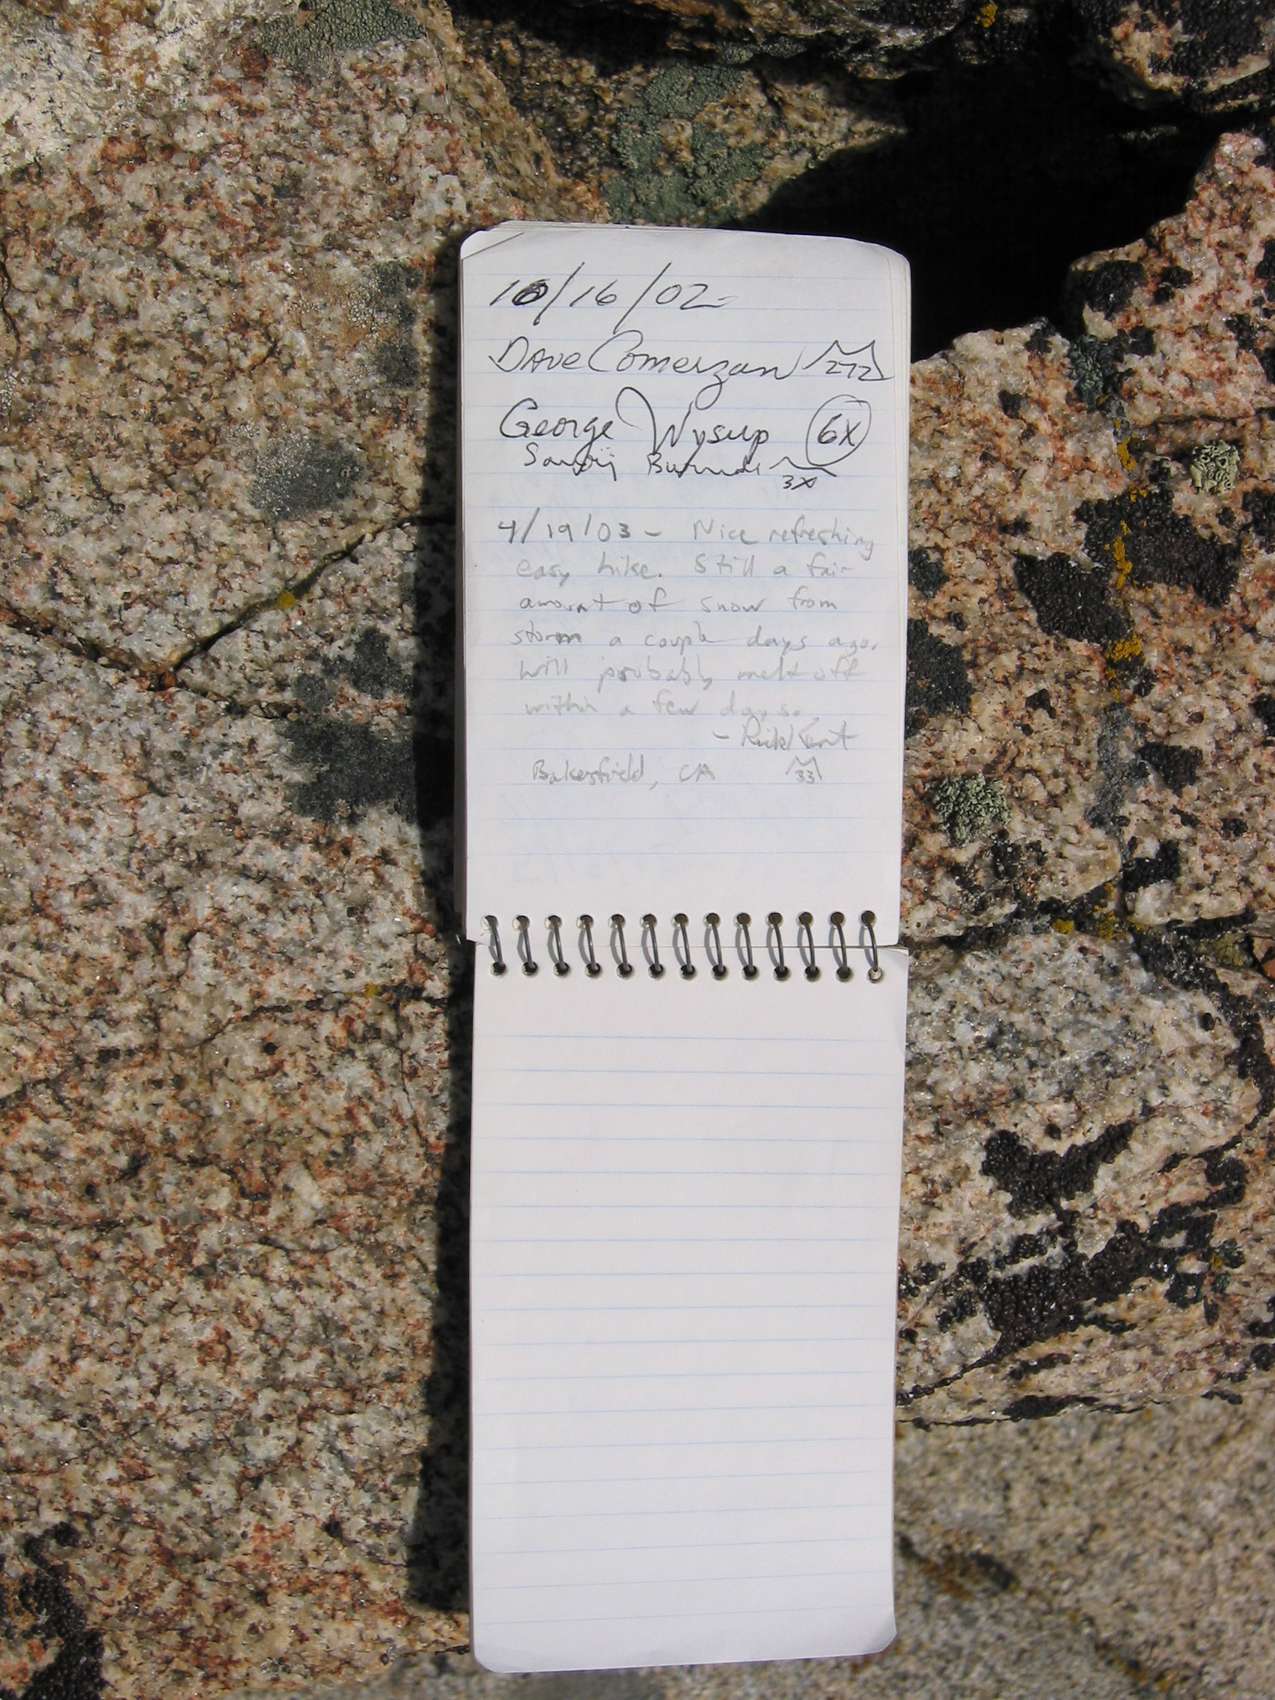 10/16/02
Dave Comerzan 272
George Wysup 6X
Sandy 3X
4/19/03 - Nice refreshing
easy hike. Still a fair
amount of snow from
storm a couple days ago.
will probably melt off
within a few days.
- Rick Kent
Bakersfield, CA 33